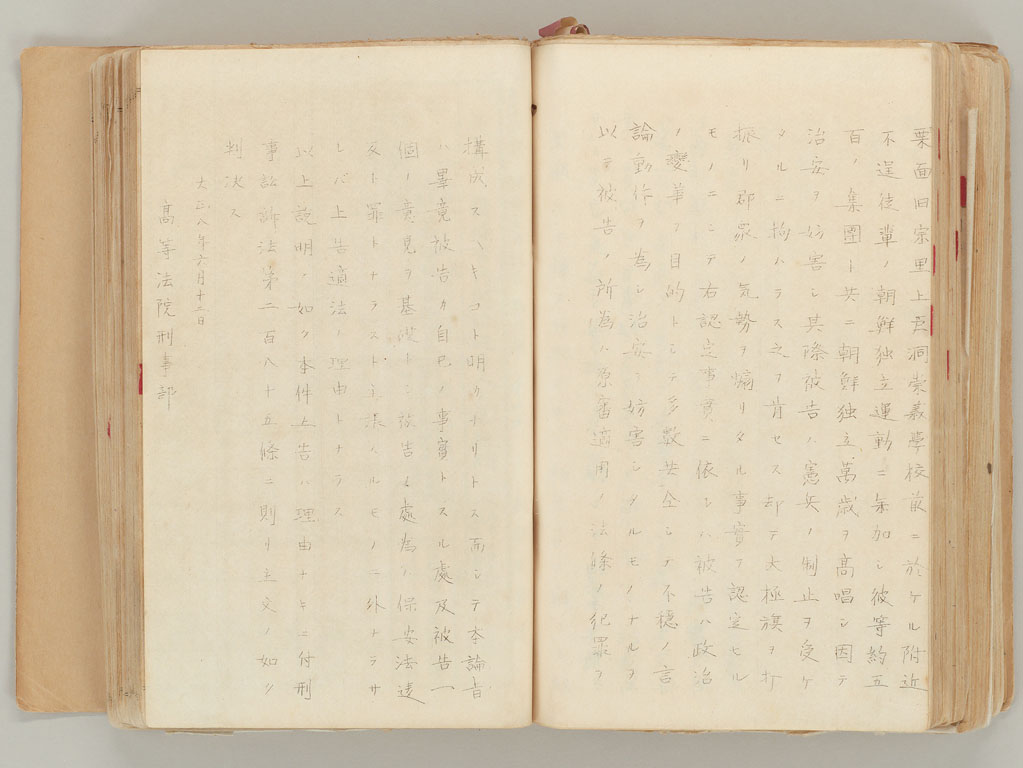 栗面旧宗里上呑洞崇義学校前ニ於ケル附近
不逞徒輩ノ朝鮮独立運動ニ参加シ彼等約五
百ノ集團ト共ニ朝鮮独立萬歳ヲ高唱シ因テ
治安ヲ妨害シ其際被告ハ憲兵ノ制止ヲ受ケ
タルニ拘ハラス之ヲ肯セス却テ太極旗ヲ打
振リ郡衆ノ気勢ヲ煽リタル事實ヲ認定セル
モノニシテ右認定事實ニ依レハ被告ハ政治
ノ変革ヲ目的トシテ多數共仝シテ不穏ノ言
論動作ヲ為シ治安ヲ妨害シタルモノナルヲ
以テ被告ノ所為ハ原審適用ノ法條ノ犯罪ヲ
構成スヘキコト明カナリトス而シテ本論旨
ハ畢竟被告カ自己ノ事實トスル處及被告一
個ノ意見ヲ基礎トシ被告ノ處為ハ保安法違
反ト罪トナラスト主張スルモノニ外トラサ
レバ上告適法ノ理由トナラス
以上説明ノ如ク本件上告ハ理由ナキニ付刑
事訟訴法第二百八十五條ニ則リ主文ノ如ク
判決ス
大正八年六月十二日
高等法院刑事部